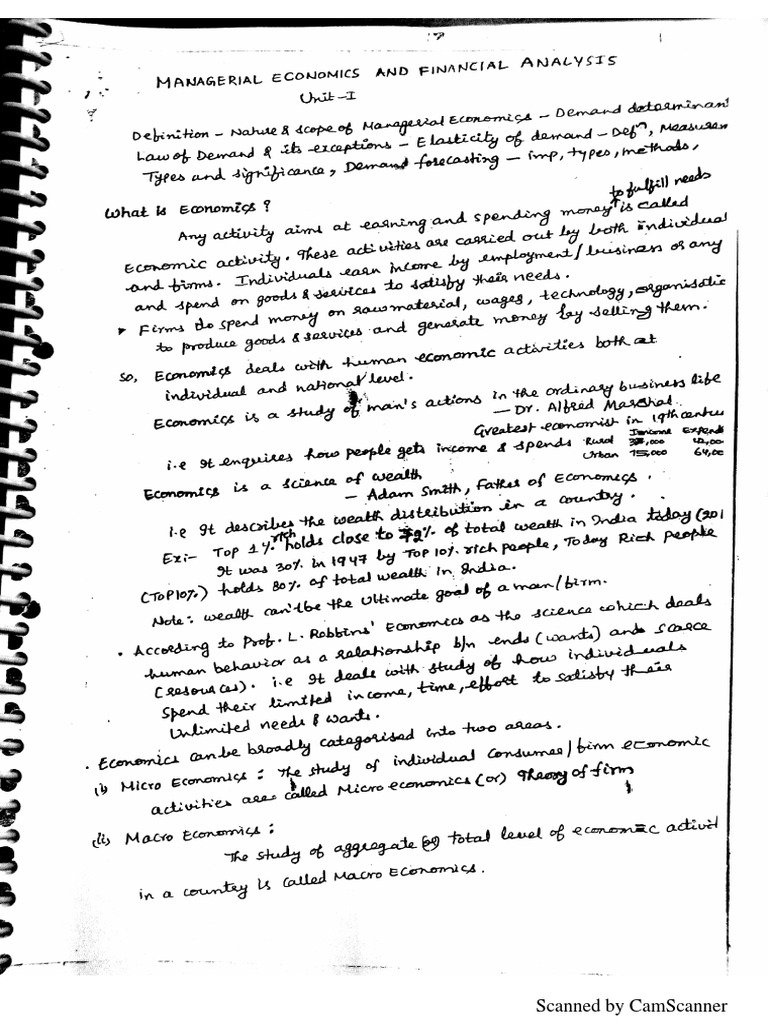 MANAGERIAL ECONOMICS AND FINANCIAL ANALYSIS
Unit-I
Definition - Nature & scope of Managerial Economics - Demand determinan
Law of Demand & its exceptions - Elasticity of demand - Defn, Measurem
Types and significance, Demand forecasting - imp, types, methods,
What is Economics?
to fulfill needs
Any activity aims at earning and spending money is called
Economic activity. These activities are carried out by both individual
and firms. Individuals earn income by employment/business or any
and spend on goods & services to satisfy their needs.
Firms do spend money on raw material, wages, technology, organisatio
to produce goods & services and generate money by selling them.
So, Economics deals with human economic activities both at
individual and national level.
Economics is a study of man's actions in the ordinary business life
- Dr. Alfred Marshal.
Greatest economist in 19th centur
Income Expend
i.e It enquires how people gets income & spends Rural
Urban 75,000 64,00
Economics is a science of wealth
- Adam Smith, Father of Economics.
i.e It describes the wealth distribution in a country.
Ex:- Top 1% rich holds close to % of total wealth in India today (201
It was 30% in 1947 by Top 10% rich people, Today Rich people
(Top 10%) holds 80% of total wealth in India.
Note: wealth can't be the ultimate goal of a man/firm.
• According to Prof. L. Robbins' Economics as the science which deals
human behavior as a relationship b/n ends (wants) and scarce
(resources). i.e It deals with study of how individuals
spend their limited income, time, effort to satisfy their
Unlimited needs & wants.
• Economics can be broadly categorised into two areas.
(i) Micro Economics: The study of individual consumer/firm economic
activities are called Micro economics (or) Theory of firm
(ii) Macro Economics:
The study of aggregate (or) total level of economic activit
in a country is called Macro Economics.
Scanned by CamScanner